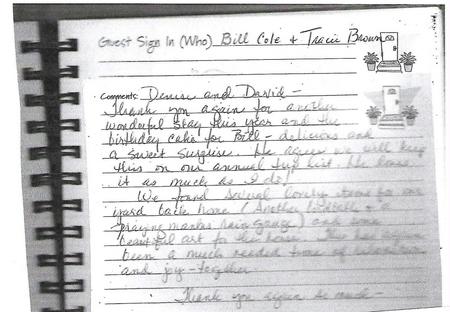 Guest Sign In (Who) Bill Cole + Tracie Brown
Comments: Denise and David -
Thank you again for another
wonderful stay this year and the
birthday cake for Bill - delicious and
a sweet surprise. He agrees we will keep
this on our annual trip list. He loves
it as much as I do!
We found several lovely items for
yard back home (Another birdbath + a
praying mantis rain gauge) and some
beautiful art for the house. This has
been a much needed time of relaxation
and joy - together
Thank you again so much -